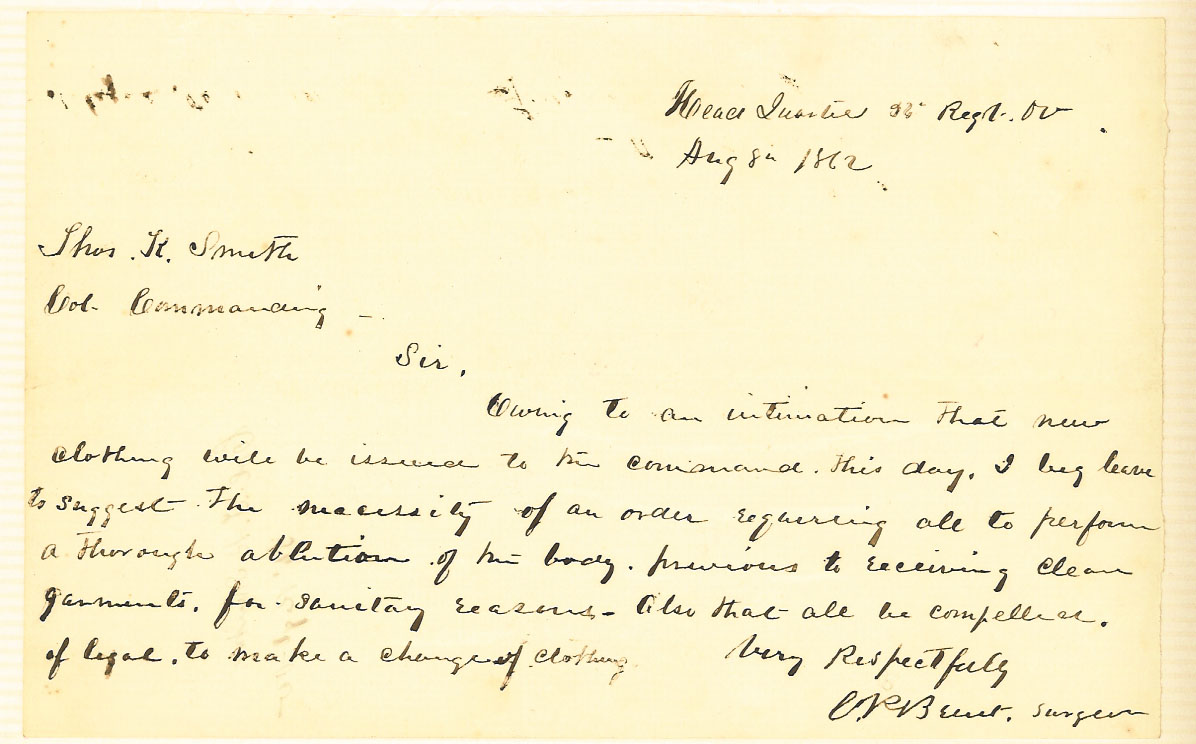 Head Quarter Regt. OV
Aug 8th 1862
Thos. K. Smith
Col Commanding -
Sir,
Owing to an intimation that new
clothing will be issued to the command. this day, I beg leave
to suggest the necessity of an order requiring all to perform
a thorough ablution of the body. previous to receiving clean
garments, for sanitary reasons - Also that all be compelled.
if legal, to make a change of clothing
Very Respectfully
Surgeon